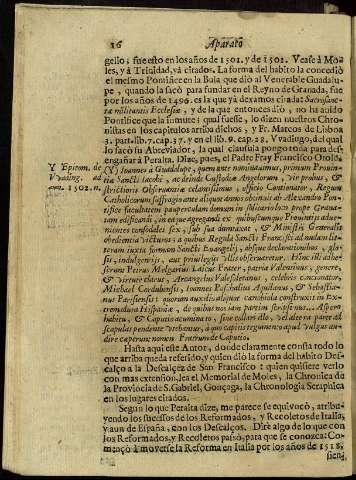 16 Aparato
gelio; fue esto en los años de 1501. y de 1502. Vease à Moa
les, y à Trinidad, yà citados. La forma del habito la concediò
el mesmo Pontifice en la Bula que diò al Venerable Guadalu-
pe, quando la sacò para fundar en el Reyno de Granada, fue
por los años de 1496. es la que yà dexamos citada: Sacrosanc-
ta militantis Ecclesiæ, y de la que entonces diò, no ha auido
Pontifice que la inmute; qual fuesse, lo dizen nuestros Chro-
nistas en los capitulos arriba dichos, y Fr. Marcos de Lisboa
3. part. lib. 7. cap. 37. y en el lib. 9. cap. 28. Vvadingo, del qual
lo sacò su Abreviador, la qual clausula pongo toda para des-
engañar à Peralta. Dize, pues, el Padre Fray Francisco
Y Epitom. de
Vvading. de
ann. 1502. n.
(Y) Ioannes à Guadalupe, quem ante nominauimus, primum Prouin-
tiæ Sancti Iacobi, ac deinde Custodiæ Angelorum, vir probus, &
strictioris Obseruantiæ celantissimus, officio Cantionator, Regum
Catholicorum suffragio ante aliquot annos obtinuit ab Alexandro Pon-
tifice facultatem pauperculam domum in
edificandi, in eaque aggregandi ex quibuscumque Prouintijs adue-
nientes consodales sex, sub sua dumtaxat, & Ministri Generalis
obedientia victuros à quibus Regula Sancti Francisci ad modum lit-
teram iuxta formam Sancti Euangelij, absque declarationibus, glo-
sis, indulgentijs, aut priuilegijs illis obseruaretur. Hinc illi adhe-
serunt Petrus Melgarius Laicus Pater, patria Valentinus, genere,
& virtute clarus, Arcangelus Valesoletanus, celebris concionator,
Michael Cordubensis, Ioannes Paschalius Aquidanus, & Sebastia-
nus Parisiensis: quorum auxilijs aliquot cænobiola construxit in Ex-
tremadura Hispaniæ, de quibus nos iam partim scripsimus... Aspero
habitu, & Caputio acuminato, sine collari illo, vel aliære parte ad
scapulas pendente vtebamur, à quo capitis tegumento apud vulgus au-
diere caperunt nomen Fratrum de Caputio.
Hasta aqui este Autor, donde claramente consta todo lo
que arriba queda referido, y quien diò la forma del habito Des-
calço à la Descalçez de San Francisco: quien quisiere verlo
con mas extension, lea el Memorial de Moles, la Chronica de
la Provincia de S. Gabriel, Gonçaga, la Chronologia Seraphica
en los lugares citados.
Segun lo que Peralta dize, me parece se equivocò, atribu-
yendo los sucessos de los Reformados, y Recoletos de Italia,
y aun de España, con los Descalços. Dirè algo de lo que con
los Reformados, y Recoletos passò, para que se conozca: Co-
mençò à moverse la Reforma en Italia por los años de 1518.
sien-